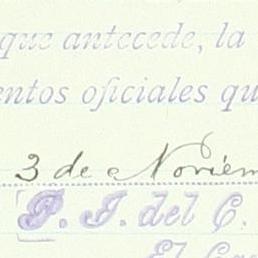 que antecede, la
entos oficiales qu
3 de Noviem
P. I. del C.
El